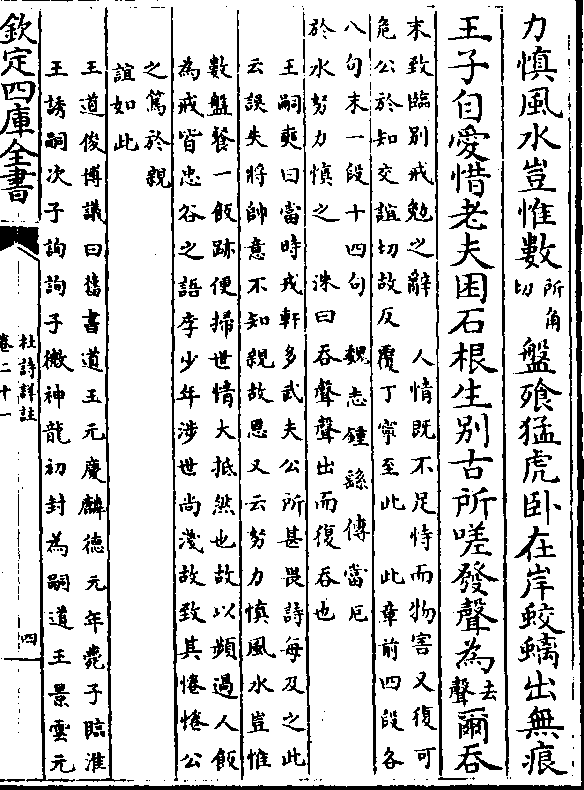 力慎風水豈惟數所角切盤飱猛虎卧在岸蛟螭出無痕
王子自愛惜老夫困石根生别古所嗟發聲為去聲爾吞
末致臨别戒勉之辭　人情既不足恃而物害又復可
危公於知交誼切故反覆丁寧至此　此章前四段各
八句末一段十四句　魏志鍾繇傳當厄
於水努力慎之　洙曰吞聲聲出而復吞也
王嗣奭曰當時戎軒多武夫公所甚畏詩每及之此
云誤失將帥意不知親故恩又云努力慎風水豈惟
數盤餐一飯跡便掃世情大抵然也故以頻過人飯
為戒皆忠谷之語李少年涉世尚淺故致其惓惓公
之篤於親
誼如此
王道俊博議曰舊書道王元慶麟德元年薨子臨淮
王誘嗣次子詢詢子微神龍初封為嗣道王景雲元
欽定四庫全書
杜詩詳註
卷二十一
四